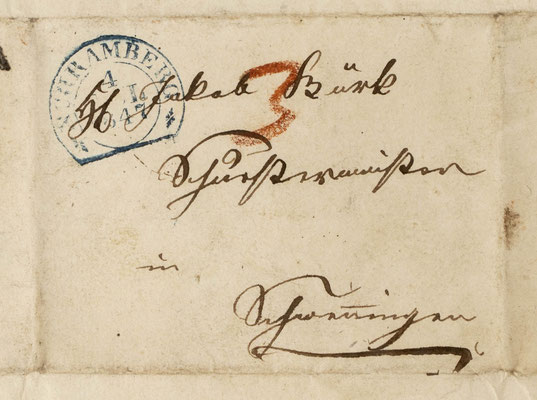 SCHRAMBERG
4
1847
3
H. Jakob Bürk
Schustermeister
in
Schwenningen